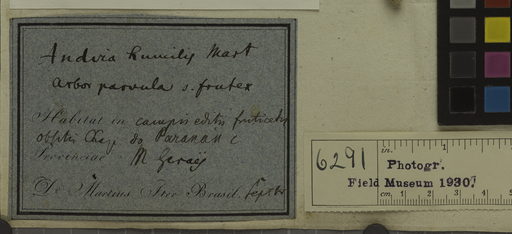 Andira humilis Mart
Arbor parvula s. frutex
Habitat in campis editis fruticetis
obsitis Chap. do Paranan
Provinciae M. Geraës
De Martius Iter Brasil. Sept.
6291
in.
Photogr.
Field Museum 1930.
cm. 1 2 3 4 5